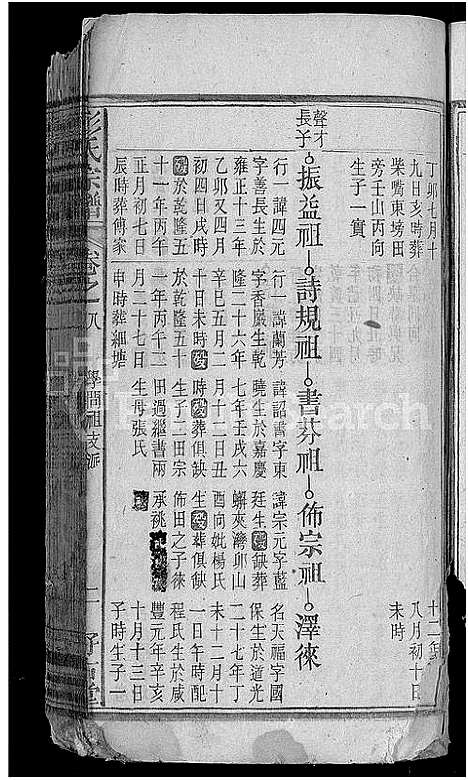 丁卯七月十
九日亥時葬
柴嘴東塝田
旁壬山丙向
生子一實
十二年
八月初十日
未時
聲才
長子
振益祖
詩規祖
書芬祖
佈宗祖
澤徠
行一諱四元
字善長生於
雍正十三年
乙卯又四月
初四日戌時
歿於乾隆五
十一年丙午
正月初七日
辰時葬傅家
行一諱蘭芳
字香巖生乾
隆二十六年
辛巳五月二
十日未時歿
於乾隆五十
一年丙午二
月二十七日
申時葬細塘
諱詔書字東
曉生於嘉慶
七年壬戌六
月十二日丑
時歿葬俱缺
生子二田宗
田過繼書兩
生母張氏
諱宗元字藍
廷生歿缺葬
蠏夾灣卯山
酉向妣楊氏
生歿葬俱缺
佈田之子徠
承祧
名天福字國
保生於道光
二十七年丁
未十二月十
一日午時配
程氏生於咸
豐元年辛亥
十月十三日
子時生子一
彭氏宗譜
卷之八
學商祖支派